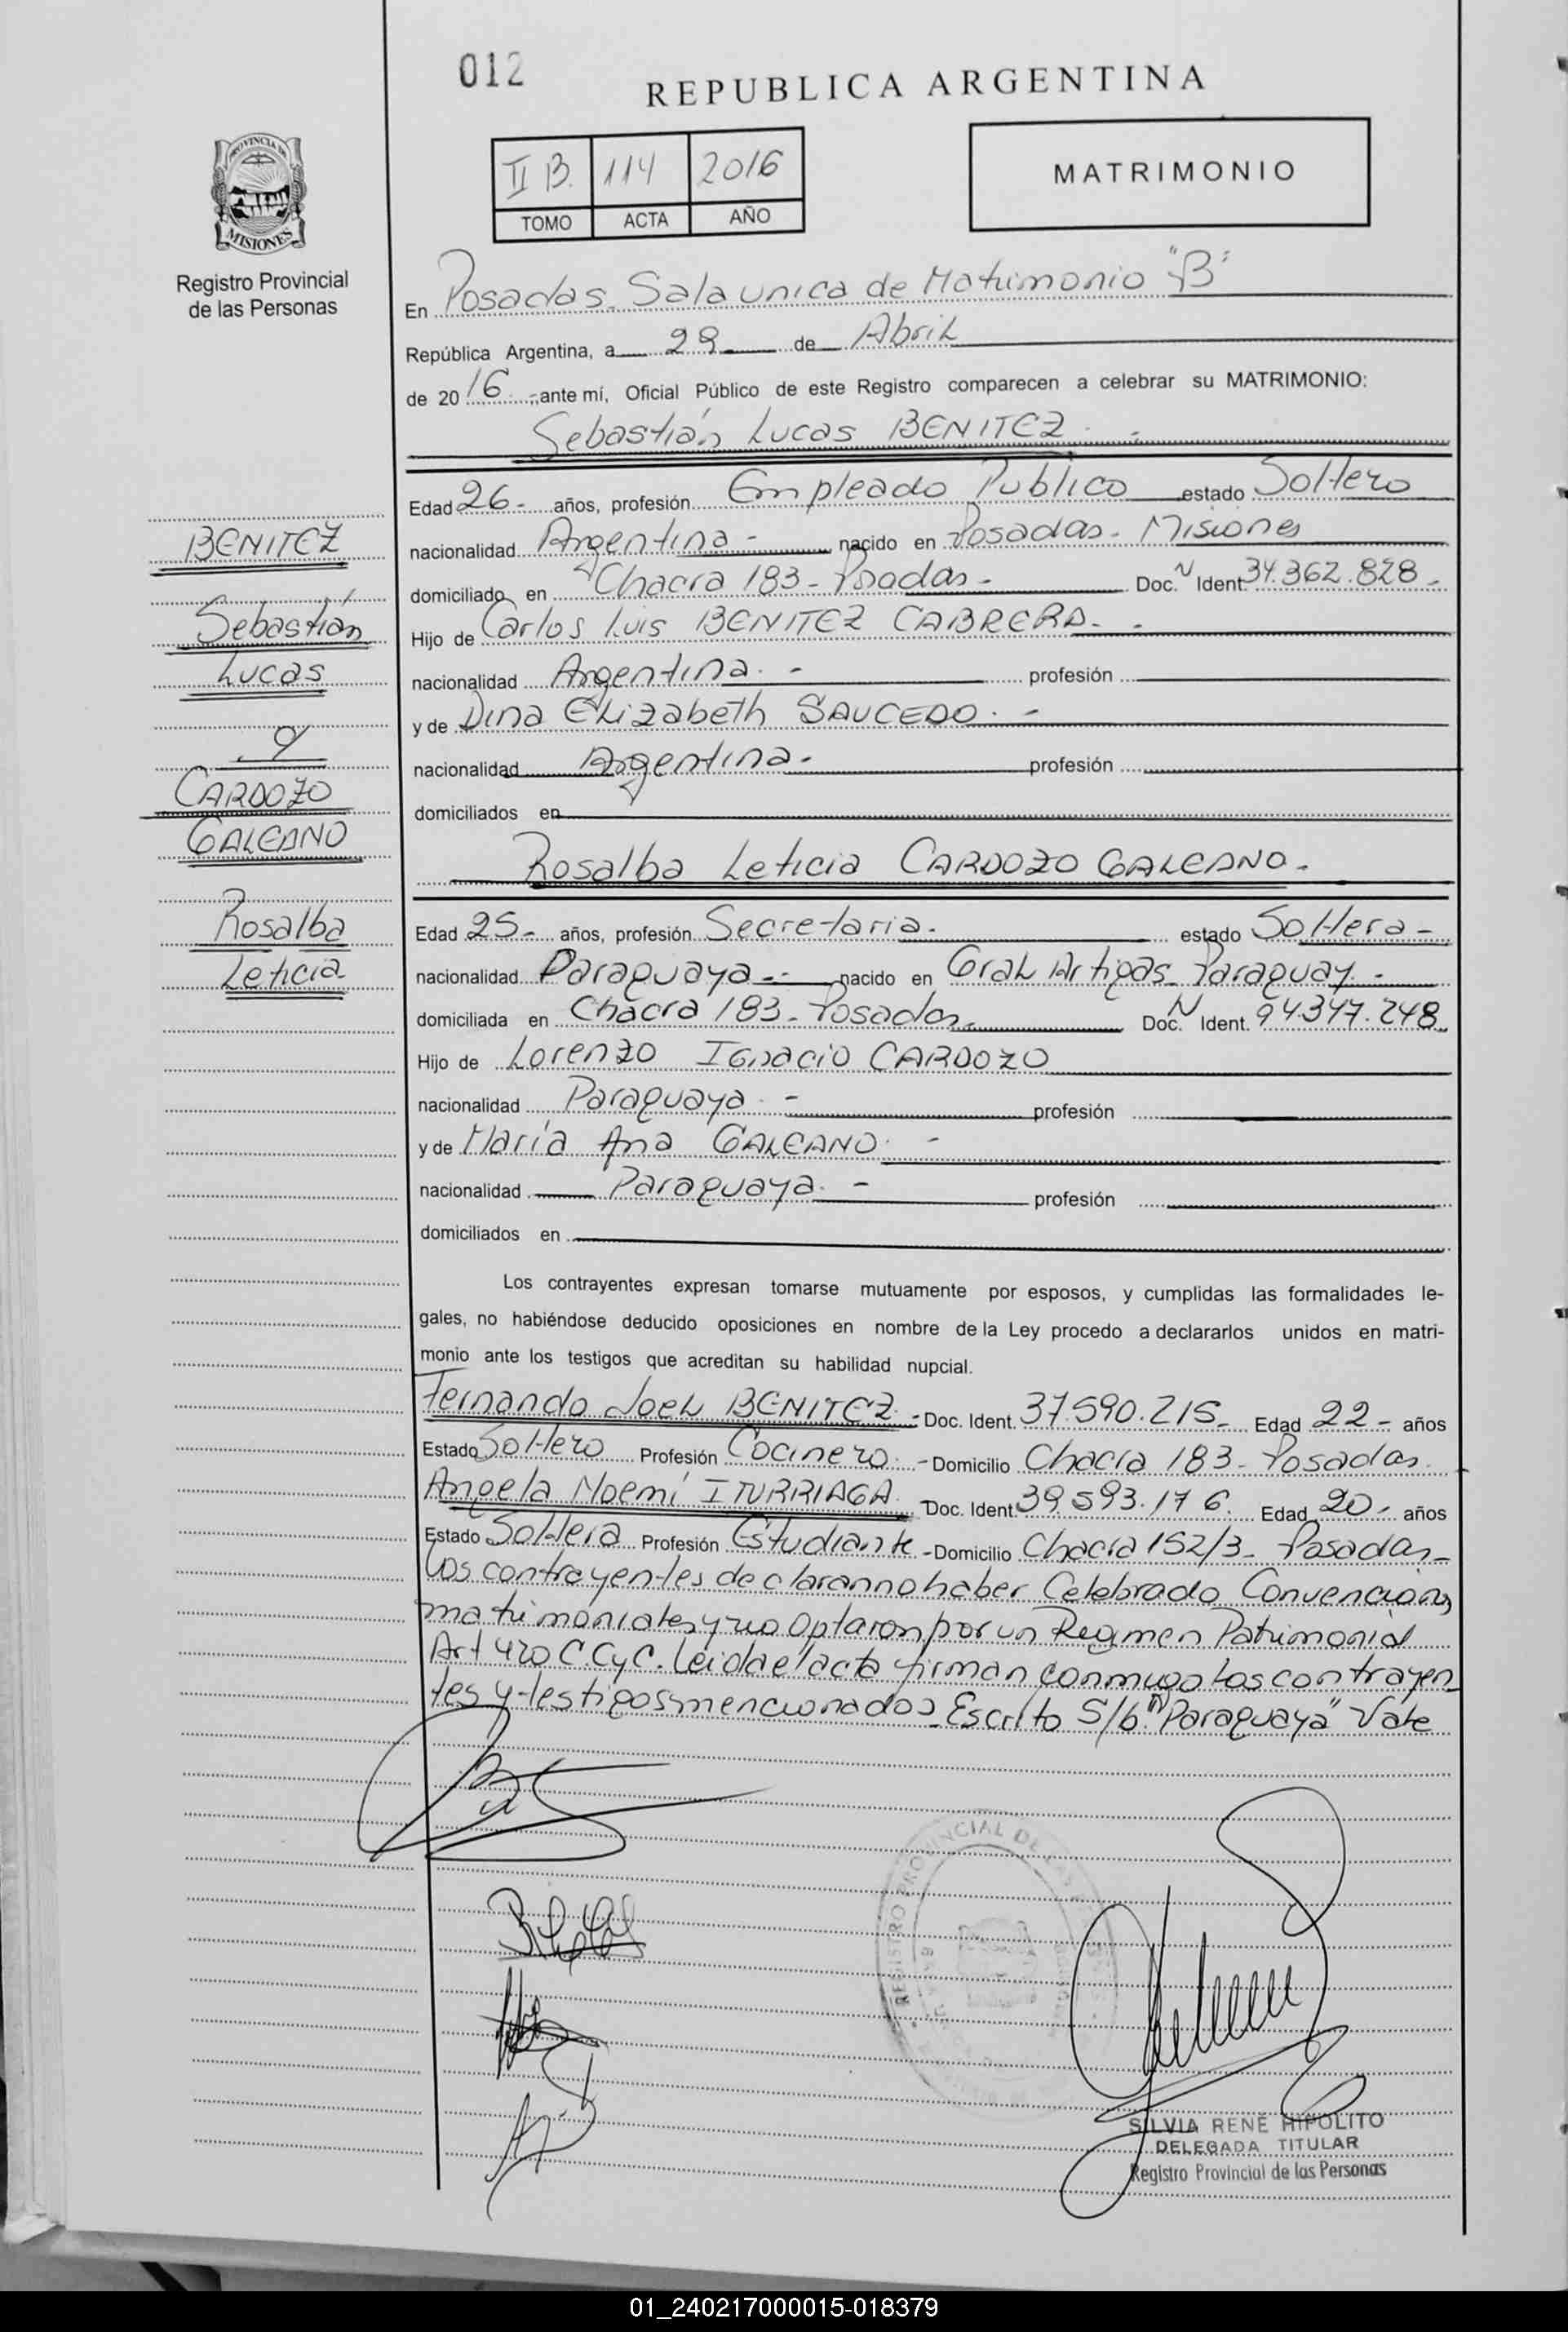 012
REPUBLICA ARGENTINA
PROVINCIA DE
MISIONES
Registro Provincial
de las Personas
II B. 114 2016
TOMO ACTA AÑO
MATRIMONIO
En Posadas. Sala unica de Matrimonio "B"
República Argentina, a 29 de Abril
de 2016.-,ante mí, Oficial Público de este Registro comparecen a celebrar su MATRIMONIO:
Sebastián Lucas BENITEZ. -
Edad 26- años, profesión Empleado Publico estado Soltero
BENITEZ
nacionalidad Argentina - nacido en Posadas. Misiones
domiciliado en Chacra 183 - Psadas - Doc. N Ident. 34.362.828-
Sebastián
Hijo de Carlos Luis BENITEZ CABRERA. -
Lucas
nacionalidad Argentina. - profesión
y de Dina Elizabeth SAUCEDO. -
y
nacionalidad Argentina. profesión
CARDOZO
domiciliados en
GALEANO
Rosalba Leticia CARDOZO GALEANO.
Rosalba
Edad 25- años, profesión Secretaria. estado Soltera -
Leticia
nacionalidad Paraguaya - nacido en Gral Artigas. Paraguay. -
domiciliada en Chacra 183 - Posadas. Doc. N Ident. 94347.248
Hijo de Lorenzo Ignacio CARDOZO
nacionalidad Paraguaya. - profesión
y de María Ana GALEANO. -
nacionalidad Paraguaya. - profesión
domiciliados en
Los contrayentes expresan tomarse mutuamente por esposos, y cumplidas las formalidades le-
gales, no habiéndose deducido oposiciones en nombre de la Ley procedo a declararlos unidos en matri-
monio ante los testigos que acreditan su habilidad nupcial.
Fernando Joel BENITEZ. - Doc. Ident. 37.590.215- Edad 22- años
Estado Soltero Profesión Cocinero. - Domicilio Chacra 183 - Posadas.
Angela Noemí ITURRIAGA. Doc. Ident. 39.593.176. Edad 20- años
Estado Soltera Profesión Estudiante - Domicilio Chacra 152/3- Posadas-
Los contrayentes declaran no haber Celebrado Convenciones
matrimoniales y no Optaron por un Regimen Patrimonial
Art 420 C.CyC. Leida el acta firman conmigo los contrayen
tes y testigos mencionados. Escrito S/b. "Paraguaya" Vale
REGISTRO PROVINCIAL DE LAS
SILVIA RENÉ HIPOLITO
DELEGADA TITULAR
Registro Provincial de las Personas
01_240217000015-018379